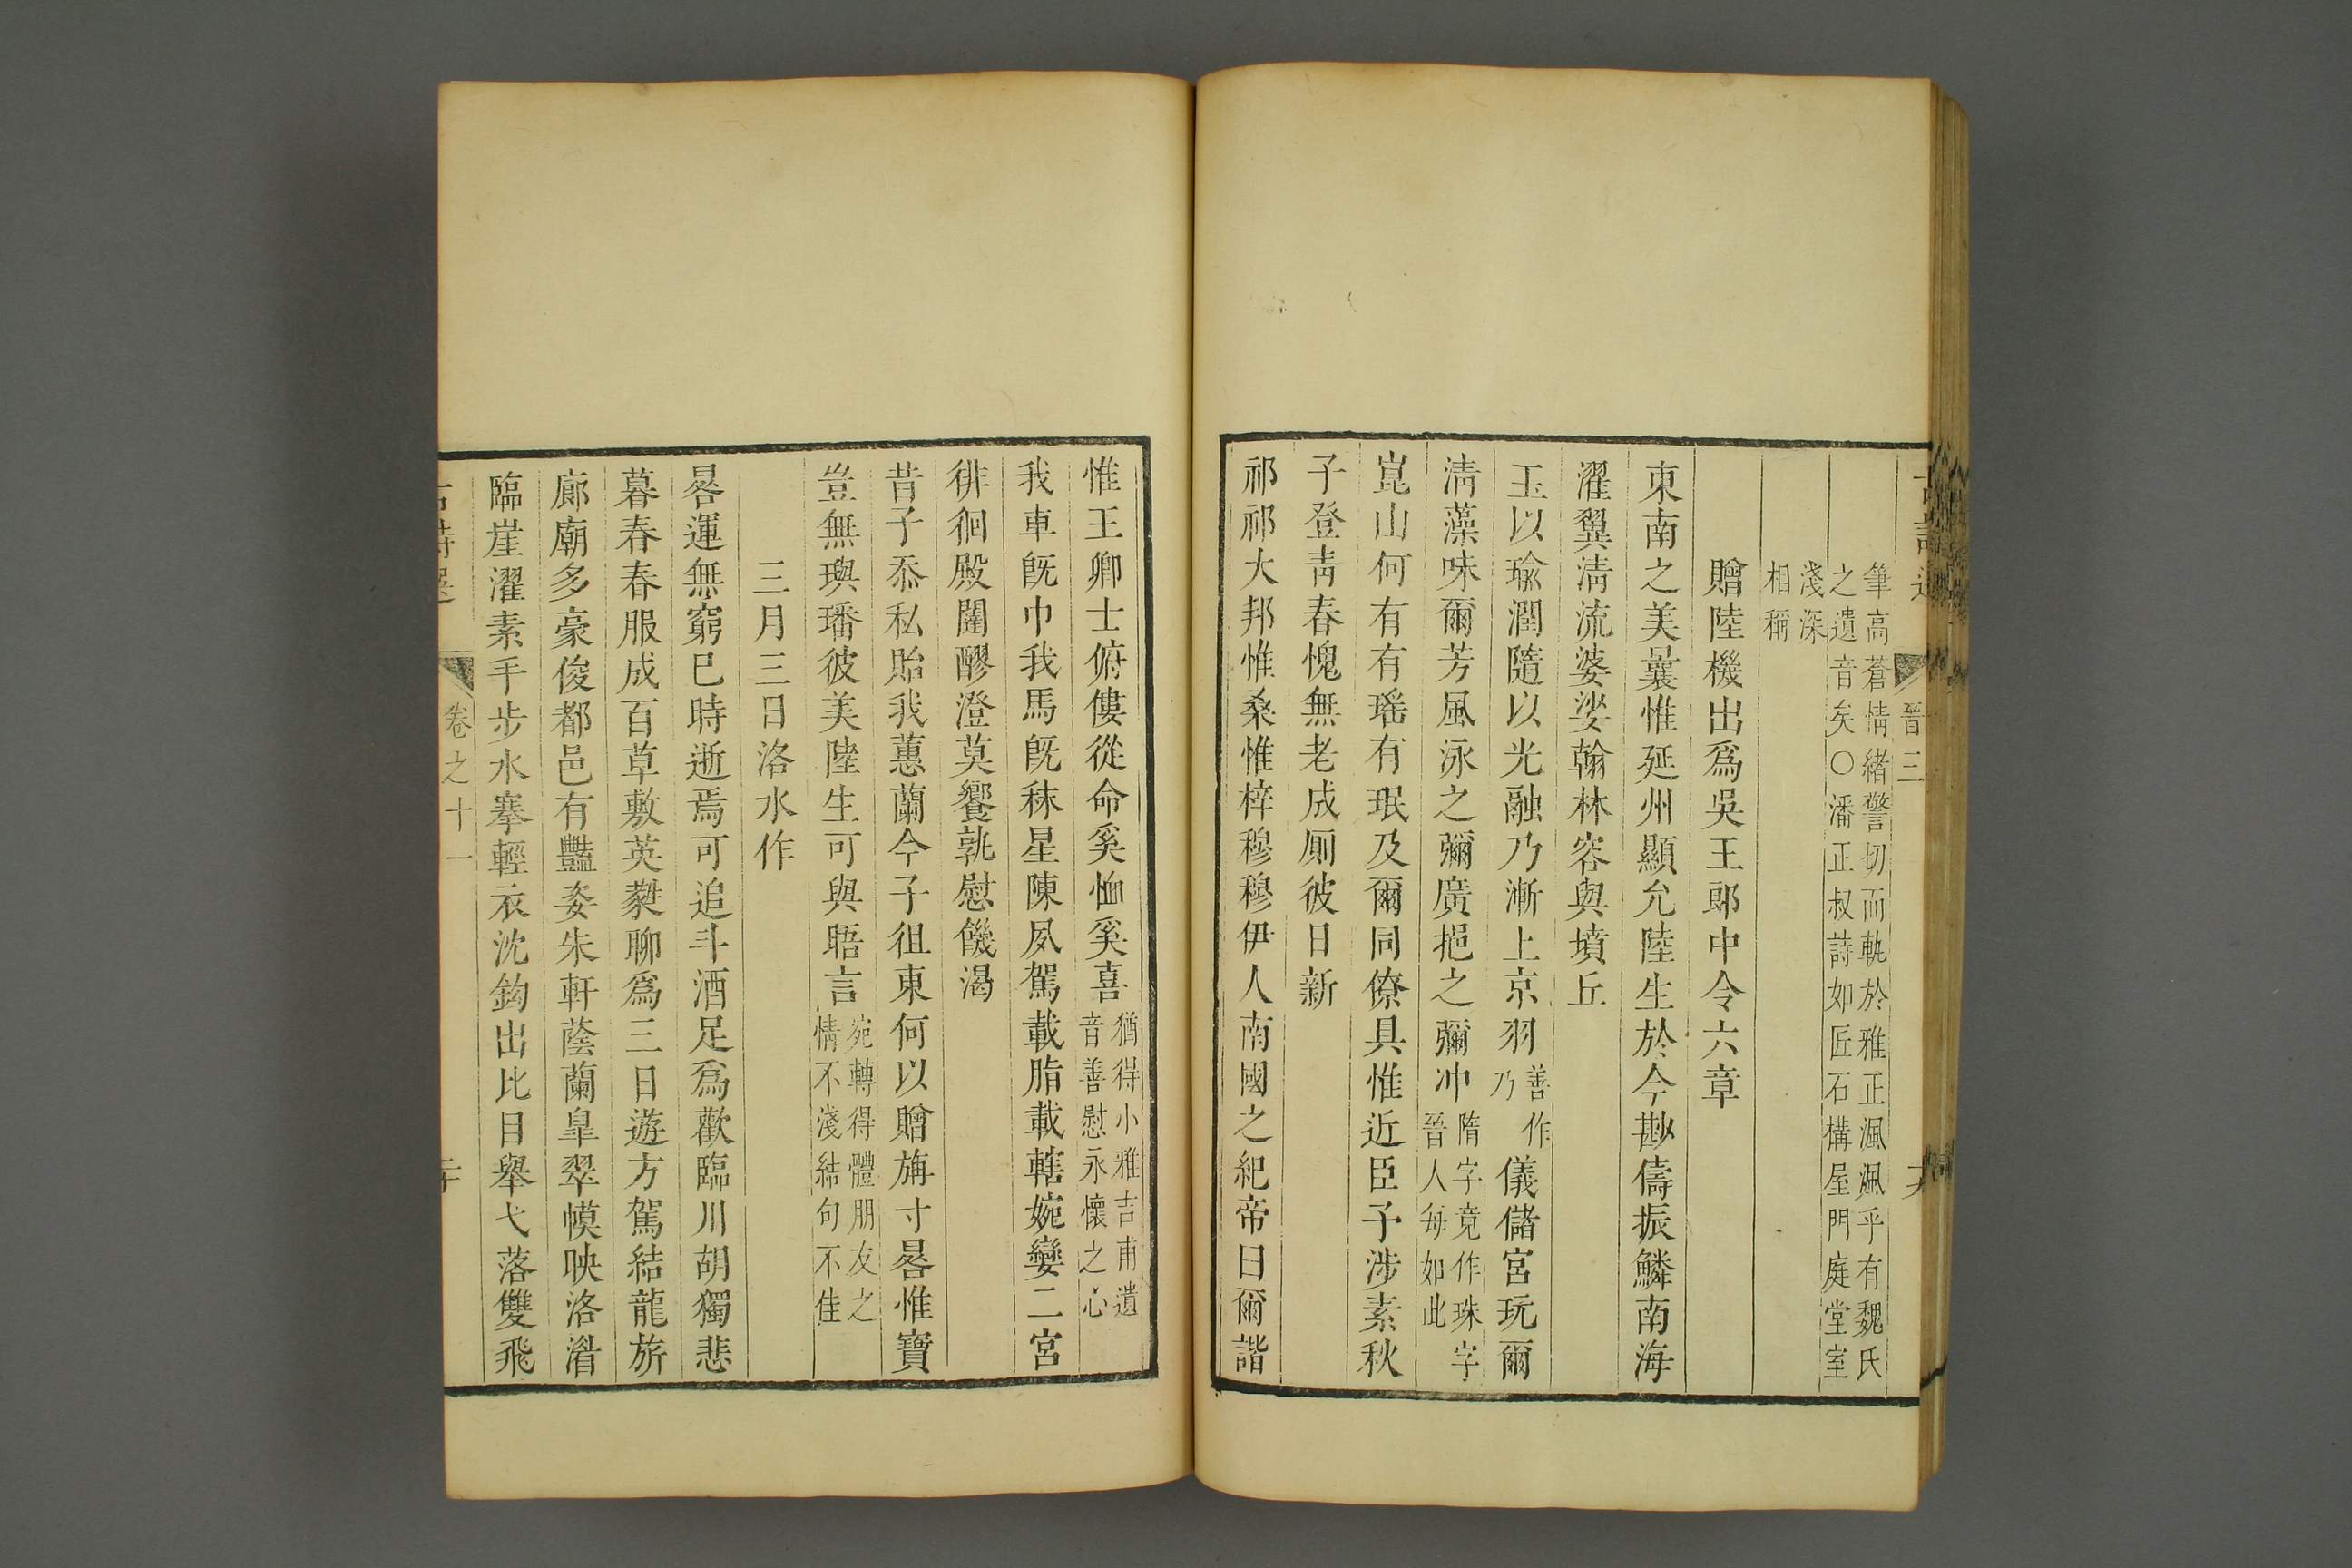 晉三
筆高蒼情緒警切而軌於雅正渢渢乎有魏氏
之遺音矣○潘正叔詩如匠石構屋門庭堂室
淺深
相稱
贈陸機出爲吳王郎中令六章
東南之美曩惟延州顯允陸生於今尠儔振鱗南海
濯翼清流婆娑翰林容與墳丘
玉以瑜潤隨以光融乃漸上京羽
善作
乃
儀儲宮玩爾
清藻味爾芳風泳之彌廣挹之彌冲
隋字竟作珠字
晉人每如此
崑山何有有瑶有珉及爾同僚具惟近臣予涉素秋
子登青春愧無老成厠彼日新
祁祁大邦惟桑惟梓穆穆伊人南國之紀帝曰爾諧
惟王卿士俯僂從命奚恤奚喜
猶得小雅吉甫遺
音善慰永懷之心
我車旣巾我馬旣秣星陳夙駕載脂載轄婉孌二宮
徘徊殿闥醪澄莫饗孰慰饑渴
昔子忝私貽我蕙蘭今子徂東何以贈旃寸晷惟寶
豈無璵璠彼美陸生可與晤言
宛轉得體朋友之
情不淺結句不佳
三月三日洛水作
晷運無窮已時逝焉可追斗酒足爲歡臨川胡獨悲
暮春春服成百草敷英蕤聊爲三日遊方駕結龍旂
廊廟多豪俊都邑有豔姿朱軒蔭蘭皐翠幙映洛湄
臨崖濯素手步水搴輕衣沈鉤出比目舉弋落雙飛
卷之十一